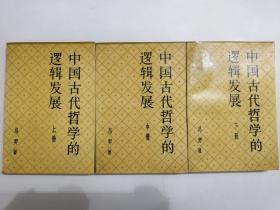 中国古代哲学的
逻辑发展
上册
冯契著
中国古代哲学的
逻辑发展
中册
冯契著
中国古代哲学的
逻辑发展
下册
冯契著